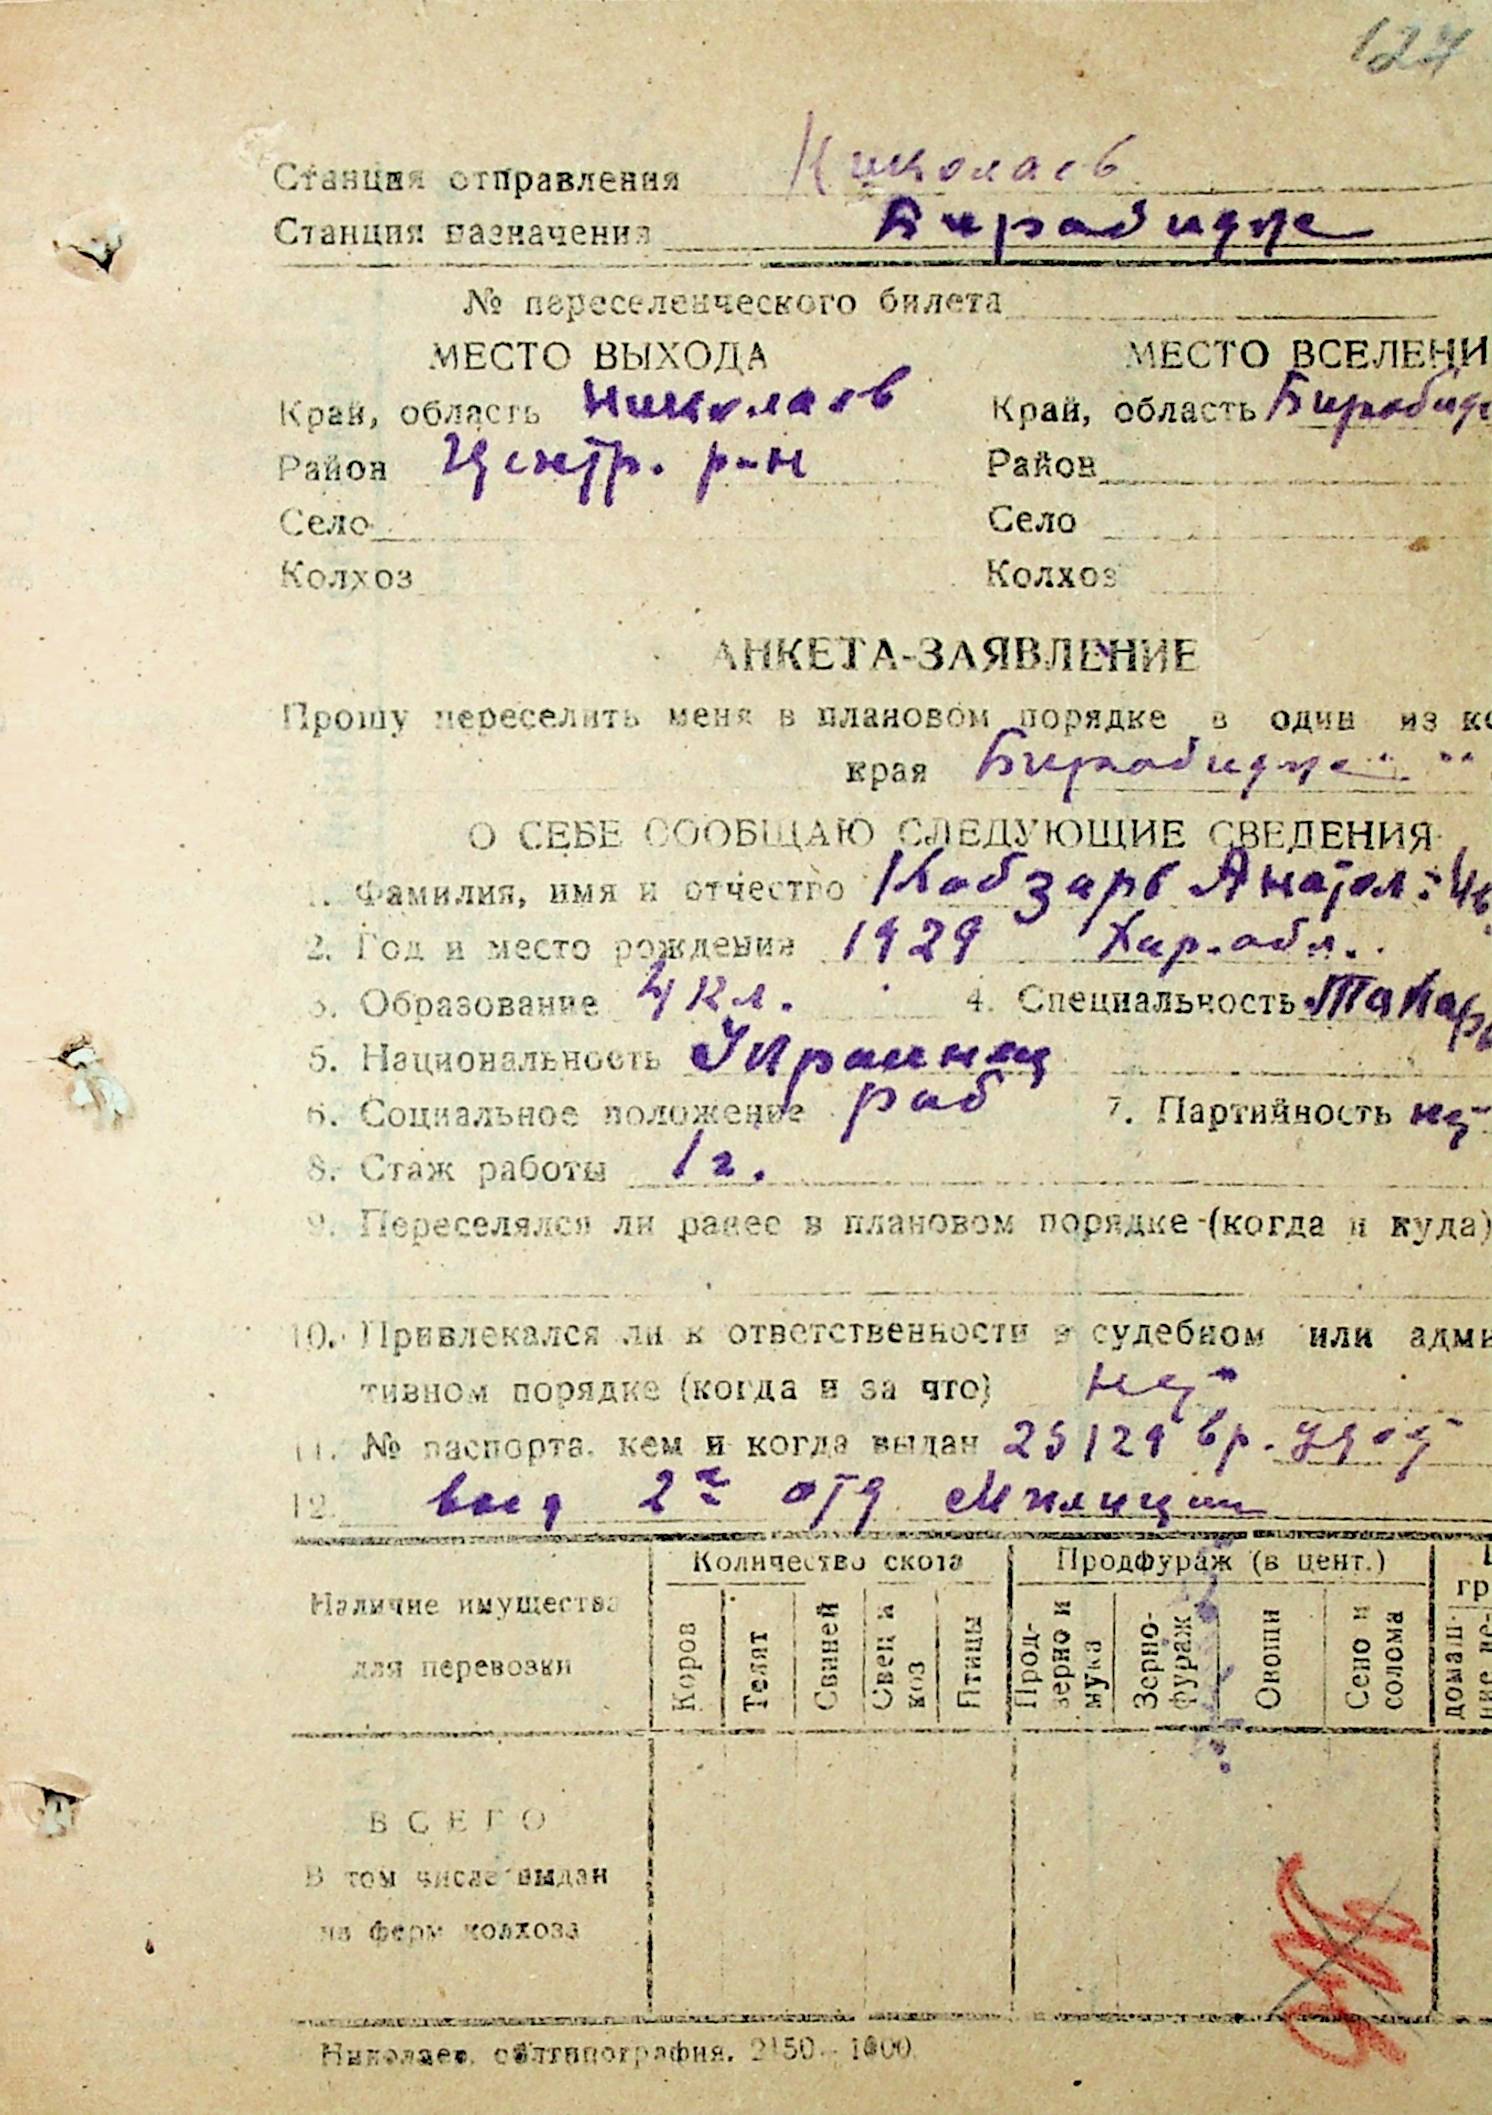 127
Станция отправления Николаев
Станция назначения Биробидже
№ переселенческого билета
МЕСТО ВЫХОДА МЕСТО ВСЕЛЕНИ
Край, область Николаев Край, область Биробидж
Район Центр. р-н Район
Село Село
Колхоз Колхоз
АНКЕТА-ЗАЯВЛЕНИЕ
Прошу переселить меня в плановом порядке в один из ко
края Биробидже
О СЕБЕ СООБЩАЮ СЛЕДУЮЩИЕ СВЕДЕНИЯ
1. Фамилия, имя и отчество Кобзарь Анатол.
2. Год и место рождения 1929 Хар. обл.
3. Образование 4 кл. 4. Специальность Токарь
5. Национальность Украинец
6. Социальное положение раб 7. Партийность нет
8. Стаж работы 1 г.
9. Переселялся ли ранее в плановом порядке (когда и куда)
10. Привлекался ли к ответственности в судебном или адми
тивном порядке (когда и за что) нет
11. № паспорта, кем и когда выдан 25129 вр. удост
12. выд 2м отд Милиции
Наличие имущества для перевозки
Количество скота Продфураж (в цент.)
гр
Коров Телят Свиней Овец и коз Птицы Прод-зерно и мука Зерно-фураж Овощи Сено и солома домаш-
ВСЕГО
В том числе выдан
на ферм колхоза
Николаев, облтипография. 2150—1000